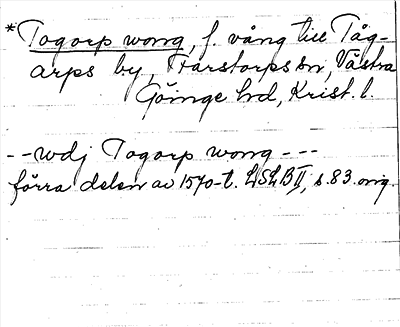 *Togorp wong, f. vång till Tåg-
arps by, Farstorps sn, Västra
Göinge hd, Krist. l.
--wdj Togorp wong ---
förra delen av 1570-t. LSLB II, s. 83. orig.